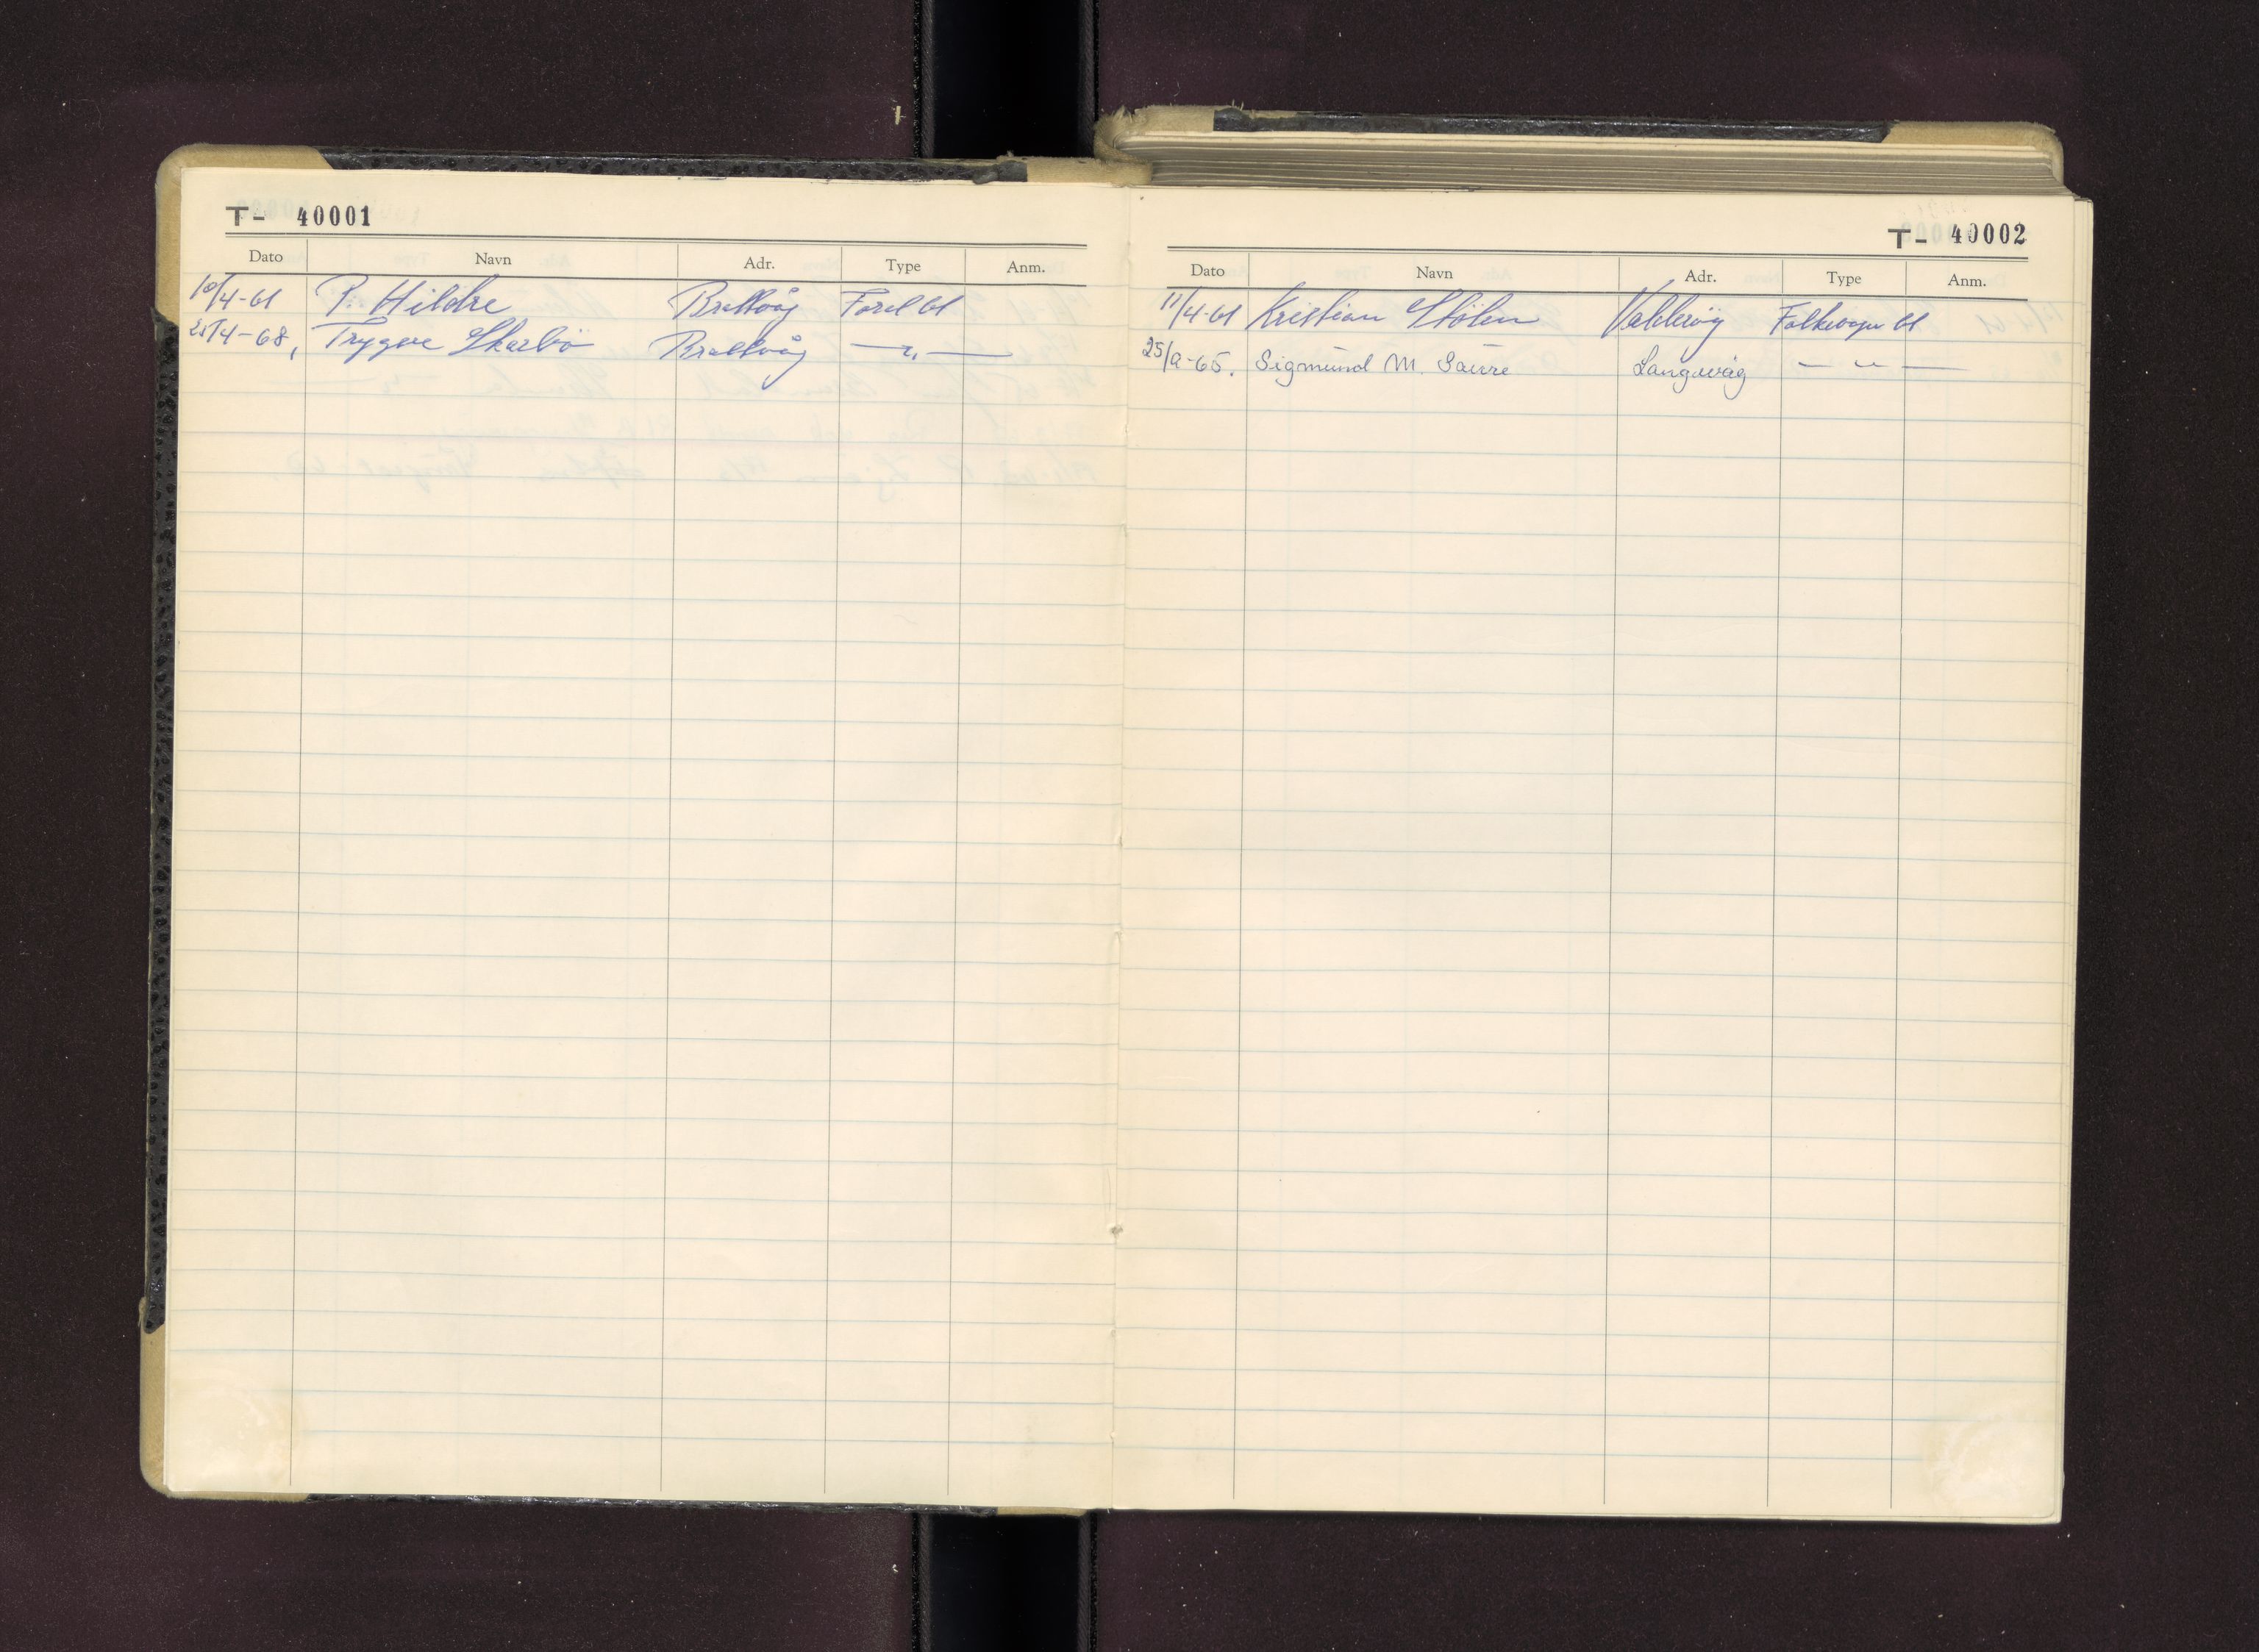 T- 40001
Dato Navn Adr. Type Anm.
10/4-61 P. Hildre Brattvåg Ford 61
25/4-68, Trygve Skarbö Brattvåg —"—
T- 40002
Dato Navn Adr. Type Anm.
11/4-61 Kristian Stölen Valderöy Folkevogn 61
25/9-65. Sigmund M. Saure Langevåg —"—